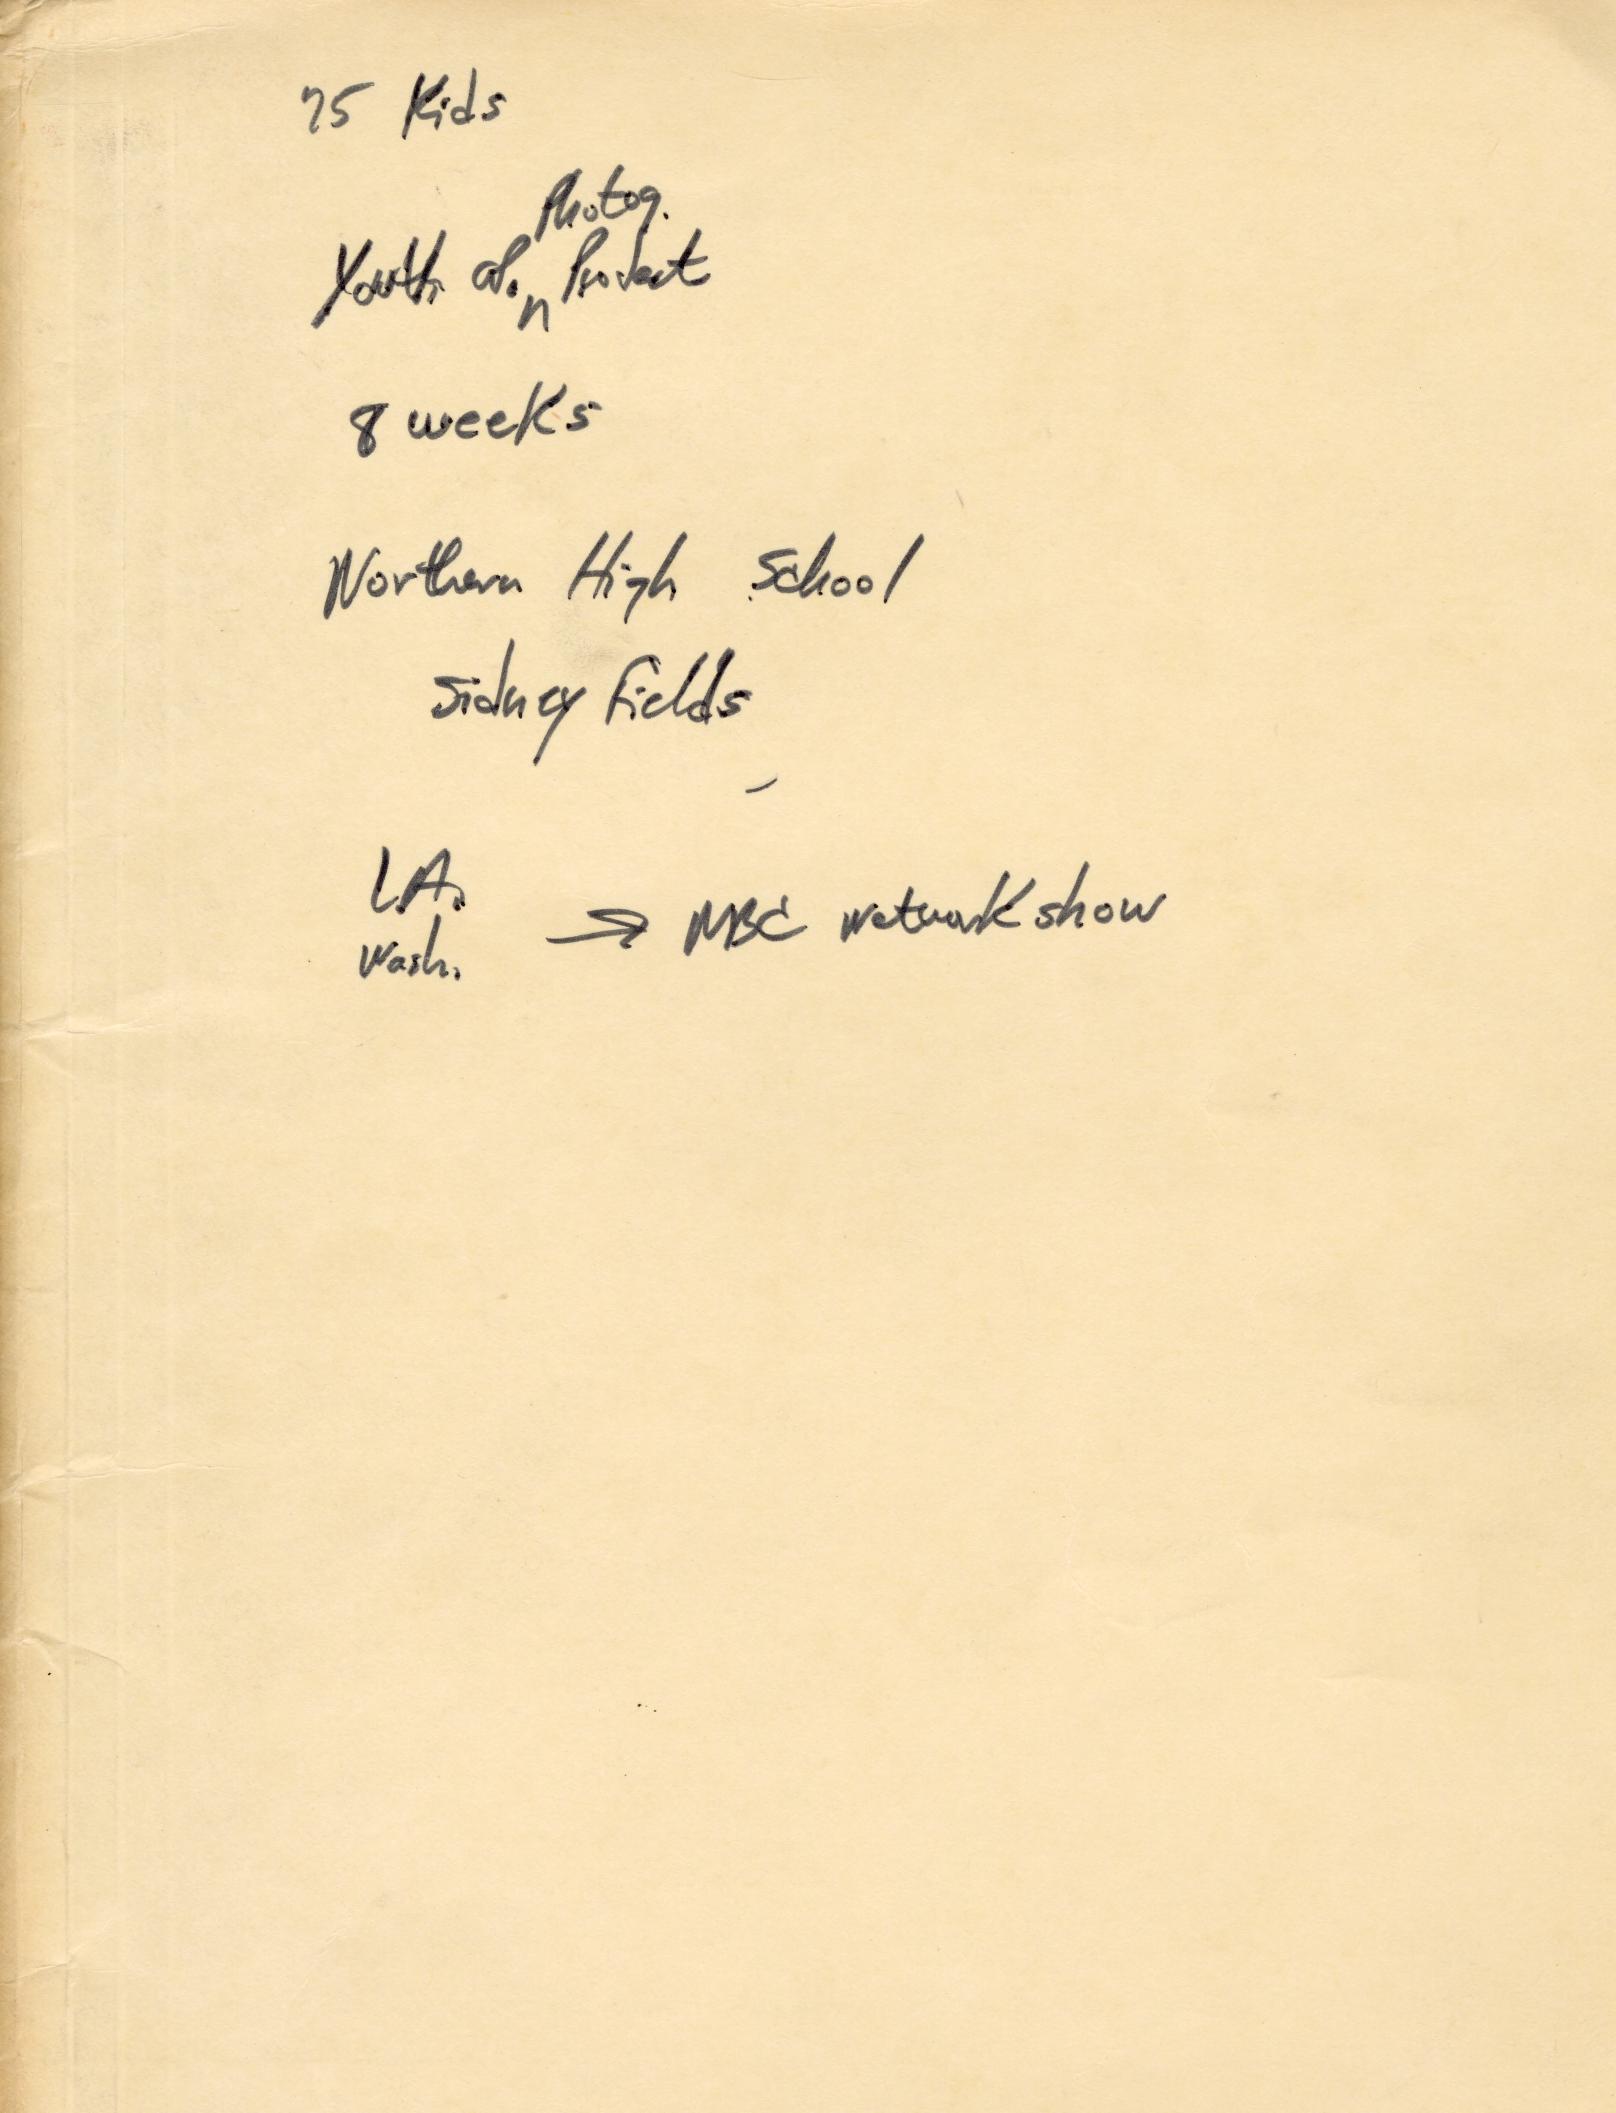 75 Kids
Photog.
Youth Op. Project
8 weeks
Northern High School
Sidney Fields
L.A.
Wash. → NBC Network show